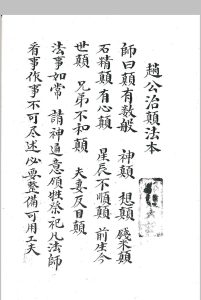 趙公治顛法本
師曰顛有數般 神顛 想顛 錢米顛
石精顛 有心顛 星辰不順顛 前生今
世顛 兄弟不和顛 夫妻反目顛
法事如常 請神過意願牲祭祀凡法師
看事作事不可尽述必要整備可用工夫